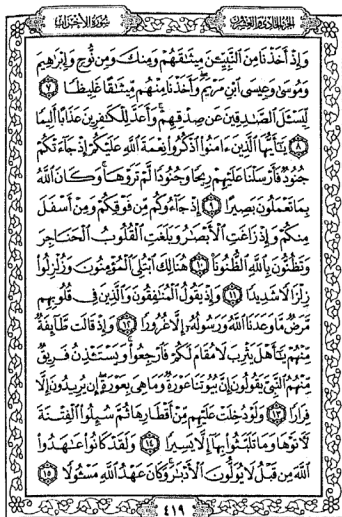 الجزء الحادي والعشرون سورة الأحزاب
وَإِذْ أَخَذْنَا مِنَ ٱلنَّبِيِّـۧنَ مِيثَـٰقَهُمْ وَمِنكَ وَمِن نُّوحٍ وَإِبْرَٰهِيمَ
وَمُوسَىٰ وَعِيسَى ٱبْنِ مَرْيَمَ ۖ وَأَخَذْنَا مِنْهُم مِّيثَـٰقًا غَلِيظًا ٧
لِّيَسْـَٔلَ ٱلصَّـٰدِقِينَ عَن صِدْقِهِمْ ۚ وَأَعَدَّ لِلْكَـٰفِرِينَ عَذَابًا أَلِيمًا
٨ يَـٰٓأَيُّهَا ٱلَّذِينَ ءَامَنُوا۟ ٱذْكُرُوا۟ نِعْمَةَ ٱللَّهِ عَلَيْكُمْ إِذْ جَآءَتْكُمْ
جُنُودٌ فَأَرْسَلْنَا عَلَيْهِمْ رِيحًا وَجُنُودًا لَّمْ تَرَوْهَا ۚ وَكَانَ ٱللَّهُ
بِمَا تَعْمَلُونَ بَصِيرًا ٩ إِذْ جَآءُوكُم مِّن فَوْقِكُمْ وَمِنْ أَسْفَلَ
مِنكُمْ وَإِذْ زَاغَتِ ٱلْأَبْصَـٰرُ وَبَلَغَتِ ٱلْقُلُوبُ ٱلْحَنَاجِرَ
وَتَظُنُّونَ بِٱللَّهِ ٱلظُّنُونَا۠ ١٠ هُنَالِكَ ٱبْتُلِىَ ٱلْمُؤْمِنُونَ وَزُلْزِلُوا۟
زِلْزَالًا شَدِيدًا ١١ وَإِذْ يَقُولُ ٱلْمُنَـٰفِقُونَ وَٱلَّذِينَ فِى قُلُوبِهِم
مَّرَضٌ مَّا وَعَدَنَا ٱللَّهُ وَرَسُولُهُۥٓ إِلَّا غُرُورًا ١٢ وَإِذْ قَالَت طَّآئِفَةٌ
مِّنْهُمْ يَـٰٓأَهْلَ يَثْرِبَ لَا مُقَامَ لَكُمْ فَٱرْجِعُوا۟ ۚ وَيَسْتَـْٔذِنُ فَرِيقٌ
مِّنْهُمُ ٱلنَّبِىَّ يَقُولُونَ إِنَّ بُيُوتَنَا عَوْرَةٌ وَمَا هِىَ بِعَوْرَةٍ ۖ إِن يُرِيدُونَ إِلَّا
فِرَارًا ١٣ وَلَوْ دُخِلَتْ عَلَيْهِم مِّنْ أَقْطَارِهَا ثُمَّ سُئِلُوا۟ ٱلْفِتْنَةَ
لَـَٔاتَوْهَا وَمَا تَلَبَّثُوا۟ بِهَآ إِلَّا يَسِيرًا ١٤ وَلَقَدْ كَانُوا۟ عَـٰهَدُوا۟
ٱللَّهَ مِن قَبْلُ لَا يُوَلُّونَ ٱلْأَدْبَـٰرَ ۚ وَكَانَ عَهْدُ ٱللَّهِ مَسْـُٔولًا ١٥
٤١٩